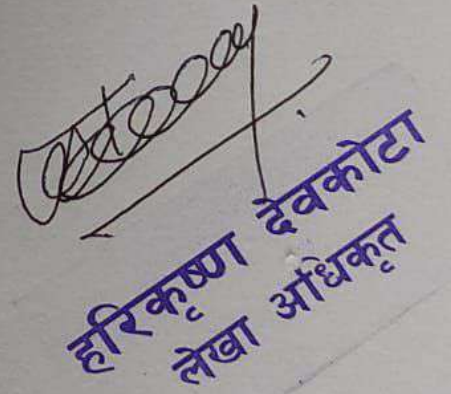 हरिकृष्ण देवकोटा
लेखा अधिकृत